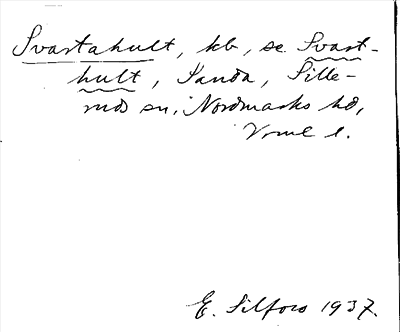 Svartahult, kb, se Svart-
hult, Sanda, Sille-
ruds sn, Nordmarks hd,
Vrml l.
E. Silfors 1937.